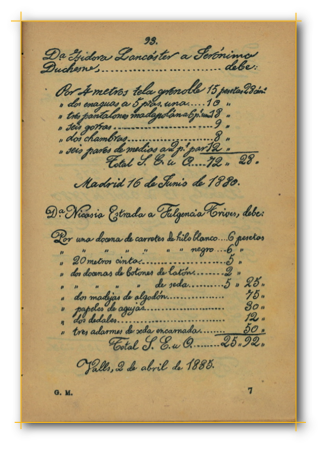 93.
Dª Isidora Lancáster a Serónima
Duchesne, .......................... debe:
Por 4 metros tela grenoble 15 pesetas 28 cs
„ dos enaguas a 5 ptas. una....10 „
„ tres pantalones madapolan a 6 ps. 18 „
„ seis gorras..................9 „
„ dos chambras.................8 „
„ seis pares de medias a 2 ps. par 12 „
Total S. E. u O.....72 „ 28 „
Madrid 16 de Junio de 1880.
Dª Nicasia Estrada a Fulgencia Trives, debe:
Por una docena de carretes de hilo blanco...6 pesetas
„ „ „ „ „ „ negro..6 „
„ 20 metros cinta..................5 „
„ dos docenas de botones de latón...2 „
„ „ „ „ „ de seda.........5 „ 25 „
„ dos madejas de algodón......... 75 „
„ papeles de agujas.............. 30 „
„ dos dedales.................... 12 „
„ tres adarmes de seda encarnada.... 50 „
Total S. E. u O.......25 „ 92 „
Valls, 2 de abril de 1885.
G. M. 7